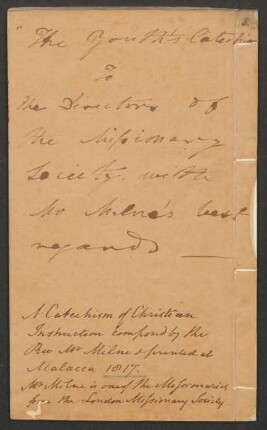 "The Youth's Catechism
To
the Directors of
the Missionary
Society, with
Mr Milne's best
regards —
A Catechism of Christian
Instruction composed by the
Rev Mr Milne & printed at
Malacca 1817.
Mr Milne is one of the Missionaries
from the London Missionary Society